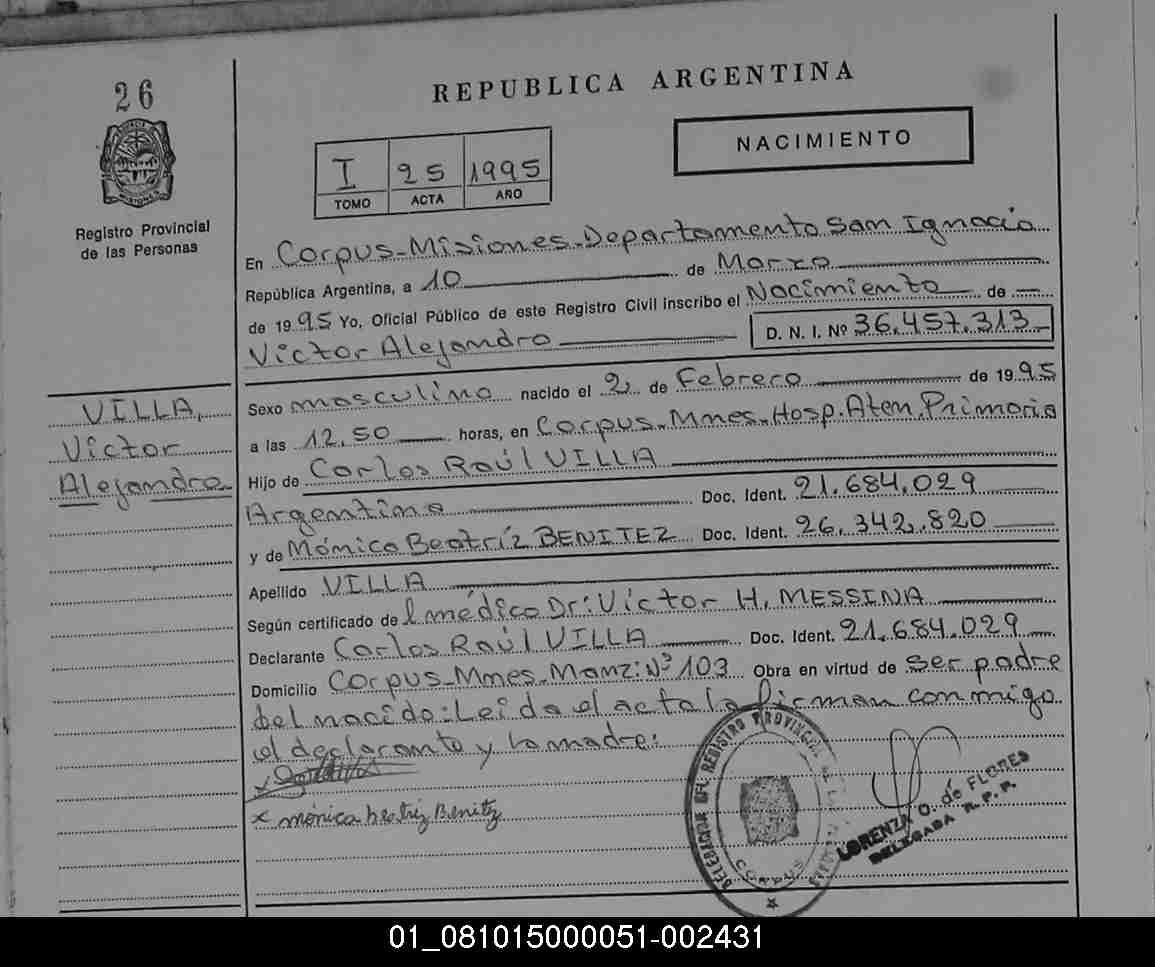 26
REPUBLICA ARGENTINA
NACIMIENTO
I 25 1995
TOMO ACTA AÑO
PROVINCIA
MISIONES
Registro Provincial
de las Personas
En Corpus-Misiones-Departamento San Ignacio
República Argentina, a 10 de Marzo
de 1995 Yo, Oficial Público de este Registro Civil inscribo el Nacimiento de
Victor Alejandro D. N. I. Nº 36.457.313
VILLA,
Victor
Alejandro
Sexo masculino nacido el 2 de Febrero de 1995
a las 12.50 horas, en Corpus-Mnes-Hosp.Aten.Primaria
Hijo de Carlos Raúl VILLA
Argentino Doc. Ident. 21.684.029
y de Mónica Beatríz BENITEZ Doc. Ident. 26.342.820
Apellido VILLA
Según certificado de l médico Dr: Victor H. MESSINA
Declarante Carlos Raúl VILLA Doc. Ident. 21.684.029
Domicilio Corpus-Mnes-Manz: Nº 103 Obra en virtud de ser padre
del nacido: Leida el acta la firman conmigo
el declarante y la madre:
x
x monica beatriz Benitz
DELEGACION DEL REGISTRO PROVINCIAL DE LAS PERSONAS
CORPUS
LORENZA O. de FLORES
DELEGADA R. P. P.
01_081015000051-002431